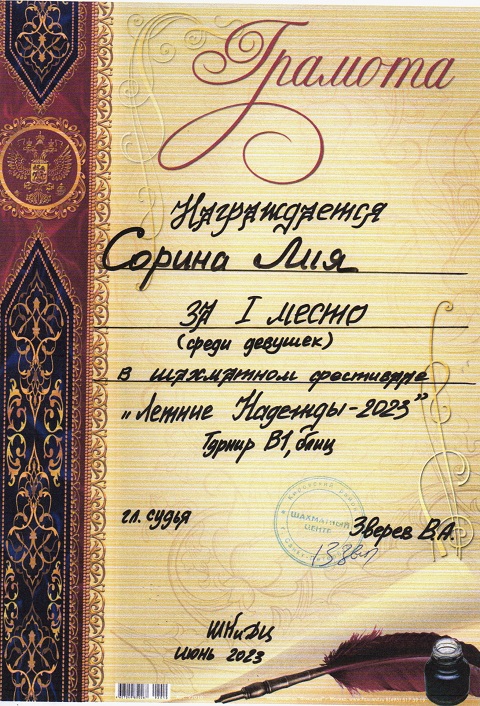 Грамота
Награждается
Сорина Лия
за I место
(среди девушек)
в шахматном фестивале
„Летние Надежды-2023”
Турнир В1, блиц
гл. судья
ШАХМАТНЫЙ
ЦЕНТР
Зверев В.А.
ШКиДЦ
июнь 2023